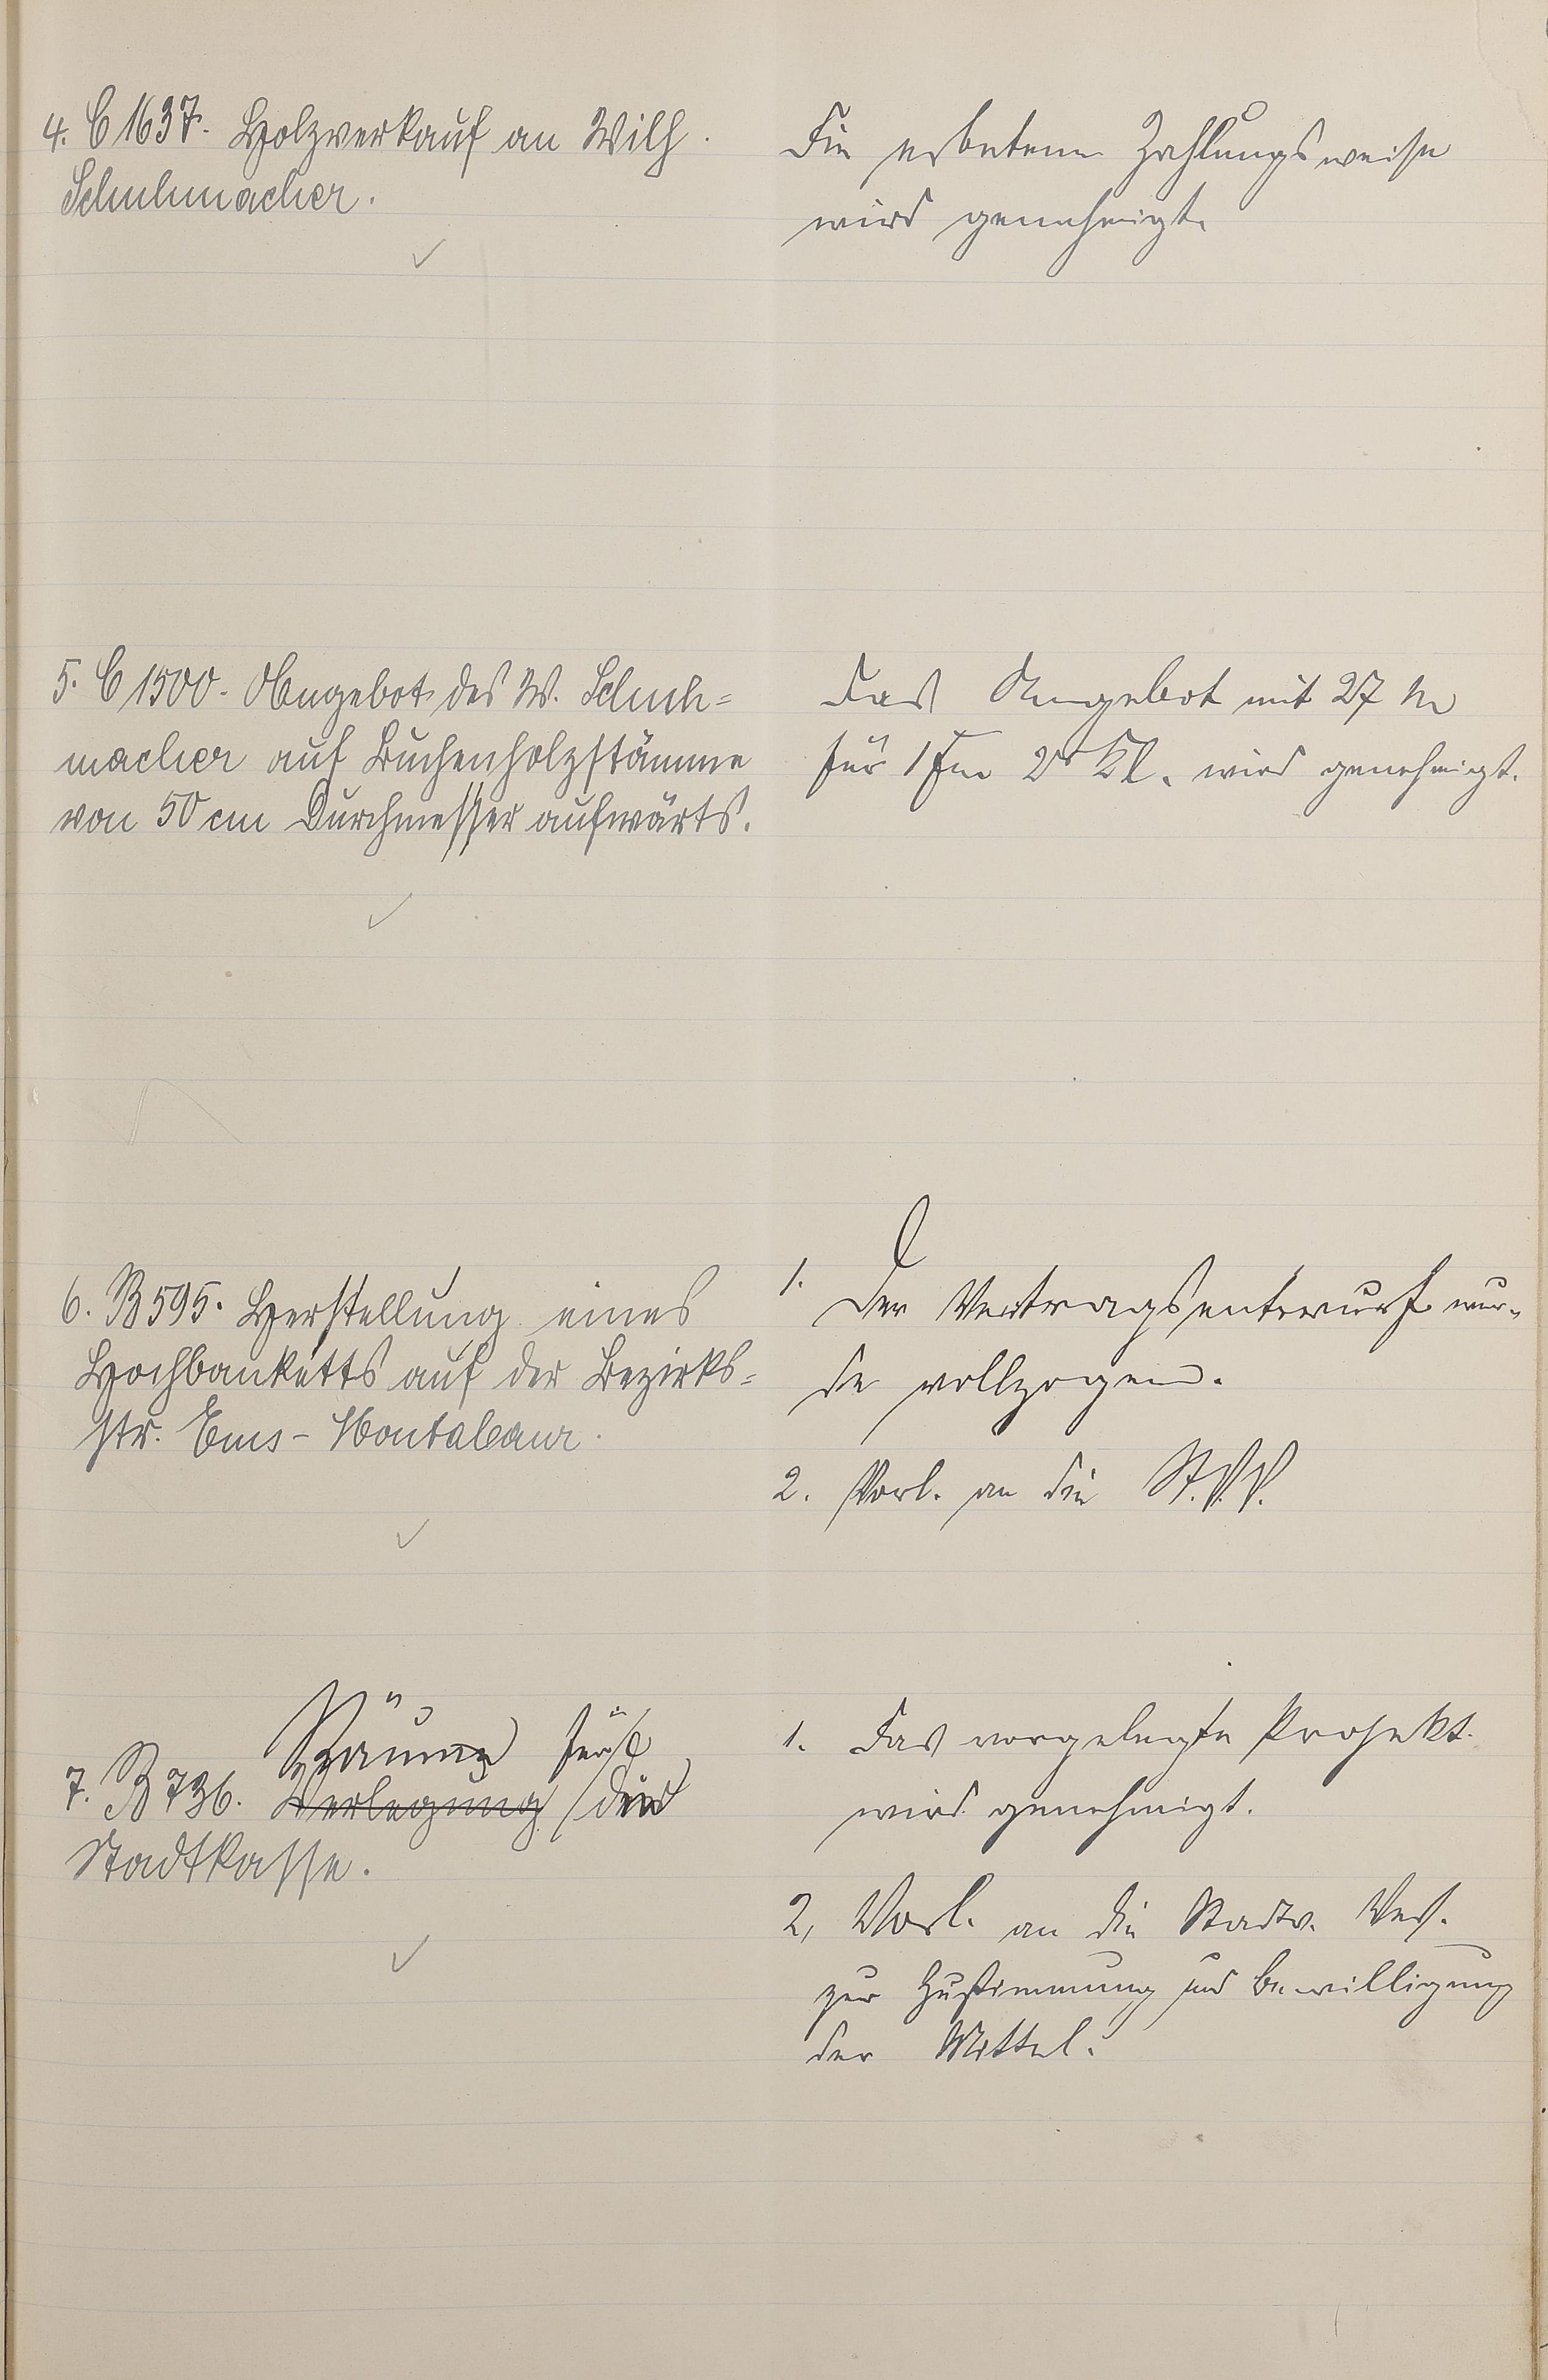 4. C 1637. Holzverkauf an Wilh.
Schuhmacher.
Die erbetene Zahlungsweise
wird genehmigt.
5. C 1500. Angebot des W. Schuh=
macher auf Buchenholzstämme
von 50 cm Durchmesser aufwärts.
Das Angebot mit 27 M
für 1 Fm 2r Kl. wird genehmigt.
6. B 595. Herstellung eines
Hochbanketts auf der Bezirks=
str. Ems-Montabaur.
1. Der Vertragsentwurf wur-
de vollzogen.
2. Vorl. an die St.V.V.
Räume für
7. B 736. Verlegung die
Stadtkasse.
1. Das vorgelegte Projekt
wird genehmigt.
2, Vorl. an die Stadtv. Vers.
zur Zustimmung und Bewilligung
der Mittel.